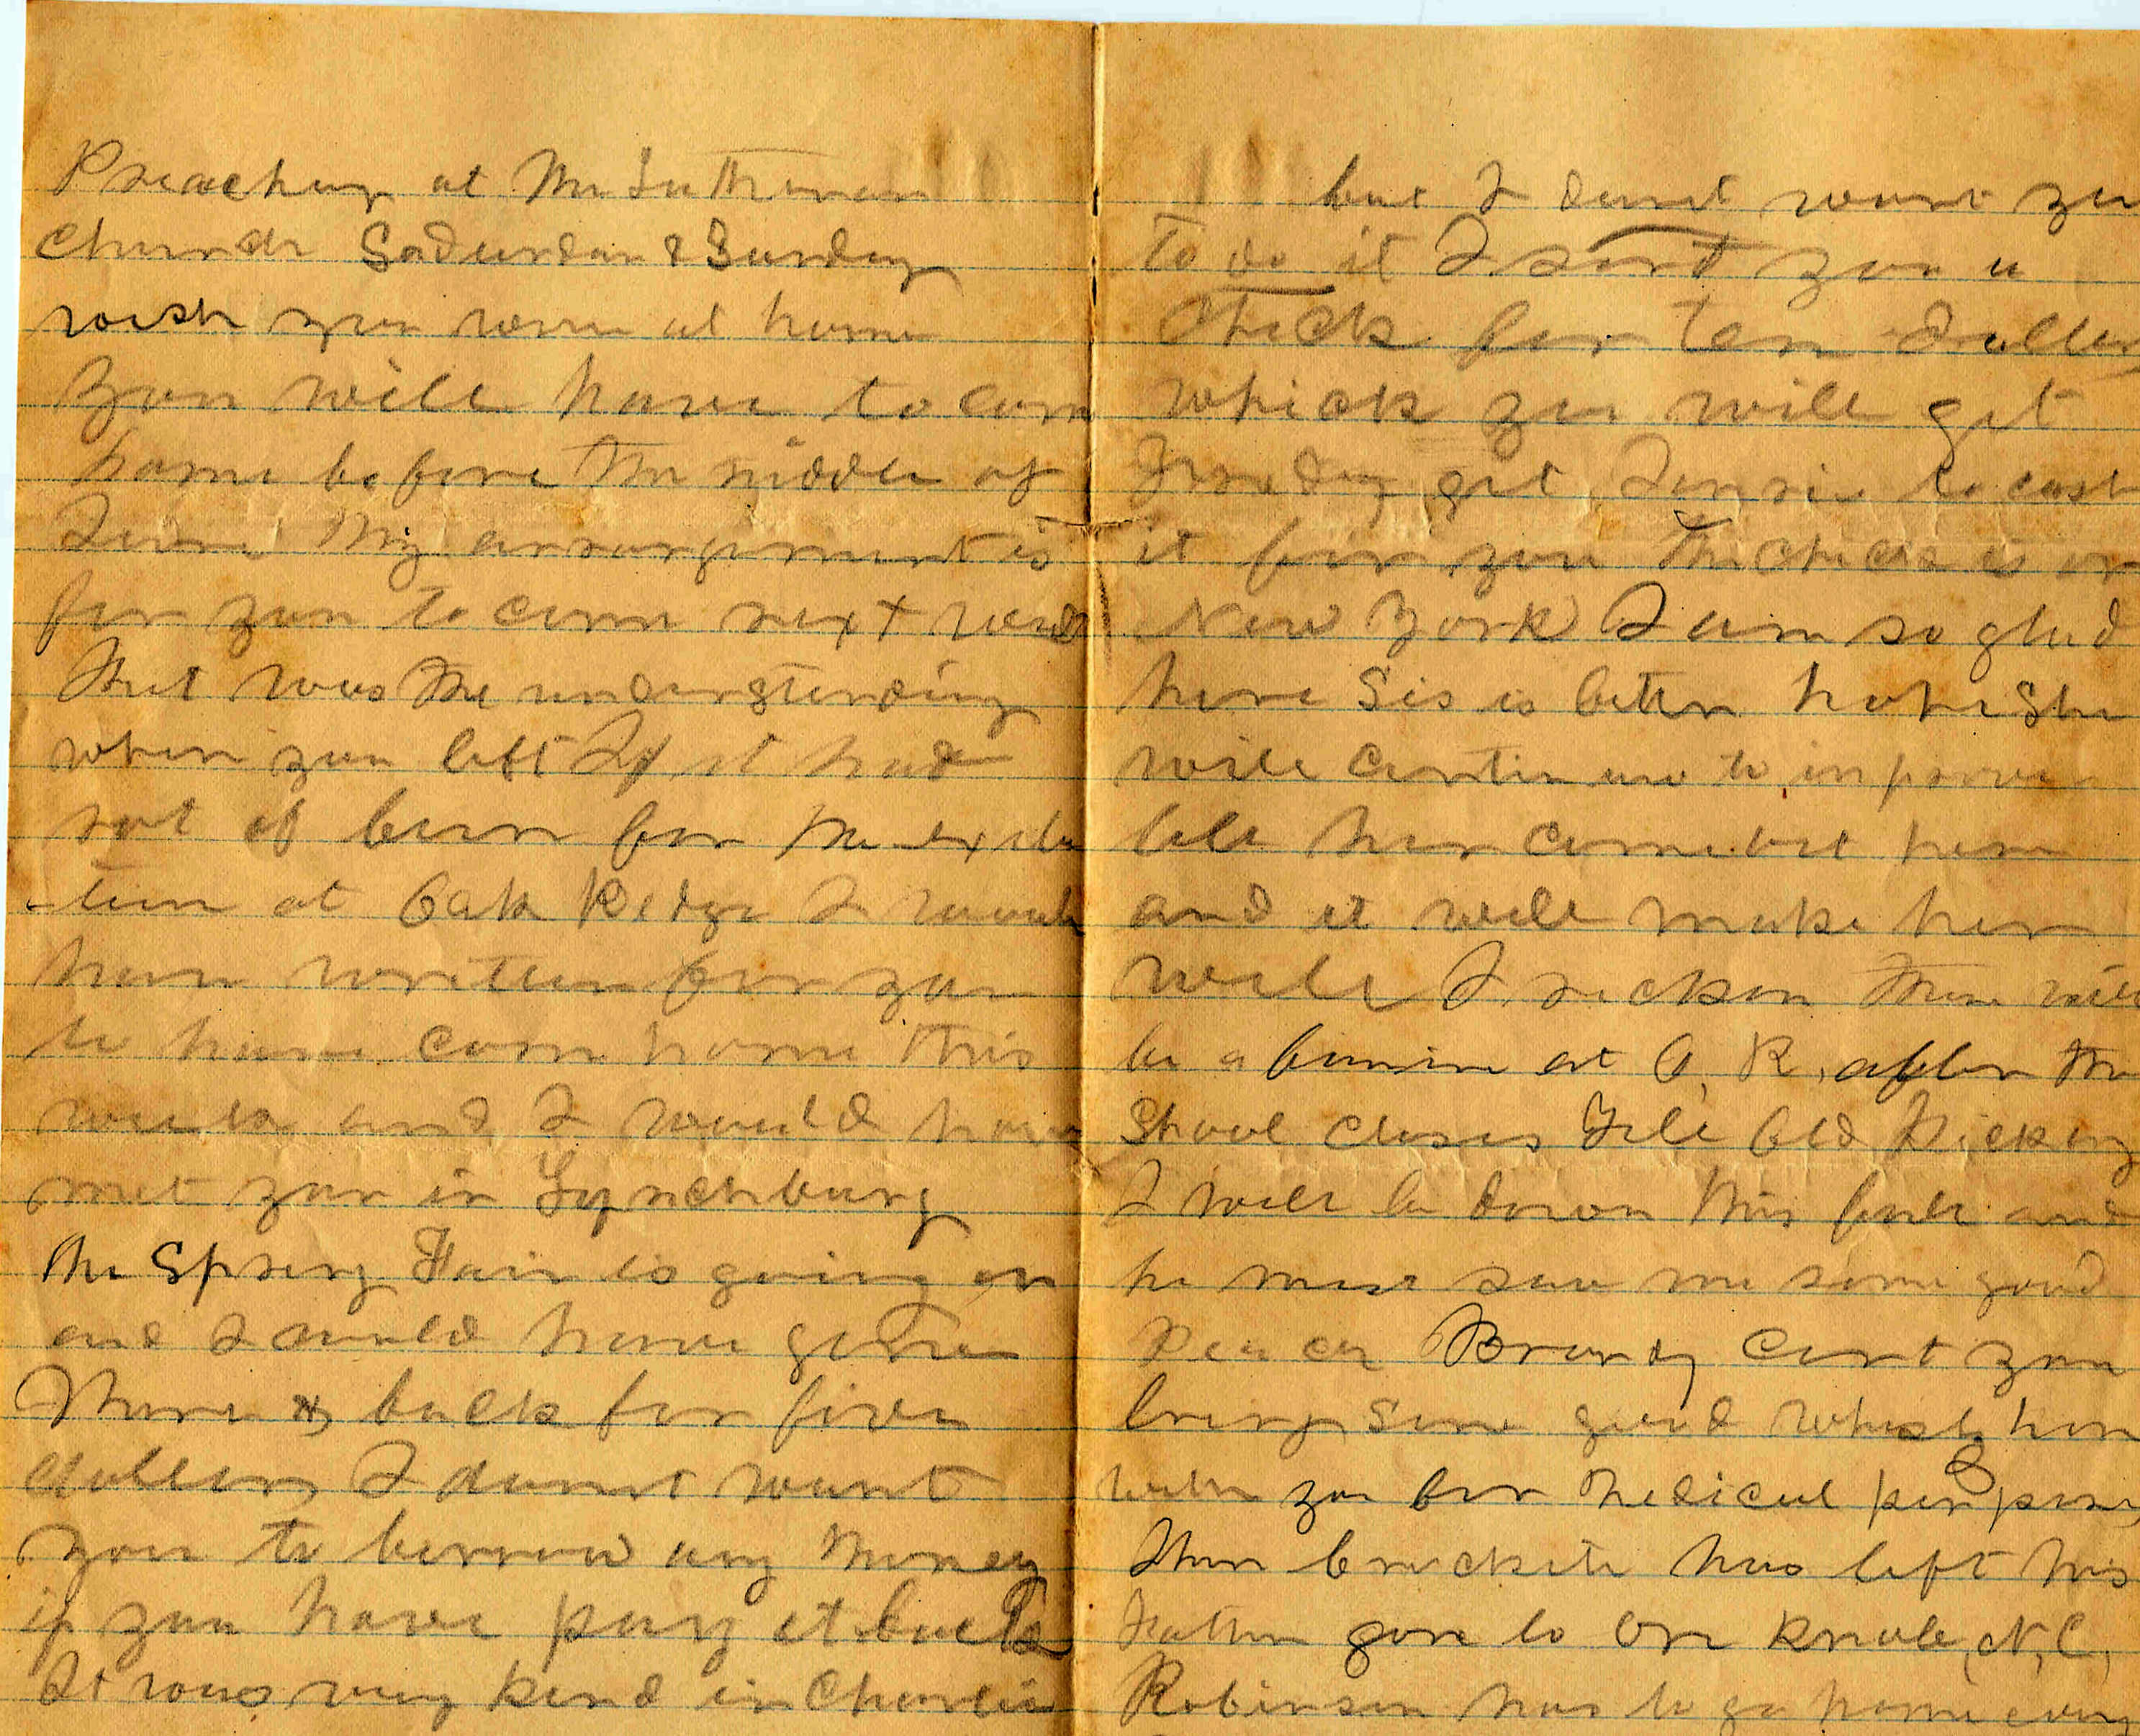 Preaching at the Lutheran
Church Sadurday & Sunday
wish you were at home
You will have to com
home before the middle of
June My arrangement is
for you to come next week
that was the understanding
when you left If it had
not of been for the exibi
-tion at Oak Ridge I would
have written for you
to have com home this
week and I would have
met you in Lynchburg
the Spring Fair is going on
and I could have gone
there & back for five
dollars I dont want
you to borrow any money
if you have pay it back
It was very kind in Charlie
but I dont want you
to do it I sent you a
Check for ten dollars
which you will get
get to cash
it for you the check is on
New York I am so glad
here Sis is better hope She
will continue to inprove
tell her come out here
and it will make her
well I reckon there will
be a famine at O. R. after the
School closes Tell Old
I will be down this fall and
he must save me some good
Peach Brandy Cant you
bring some good
with you for Medical purposes
has left his
Father gone to N, C,
Robinson has to go home every